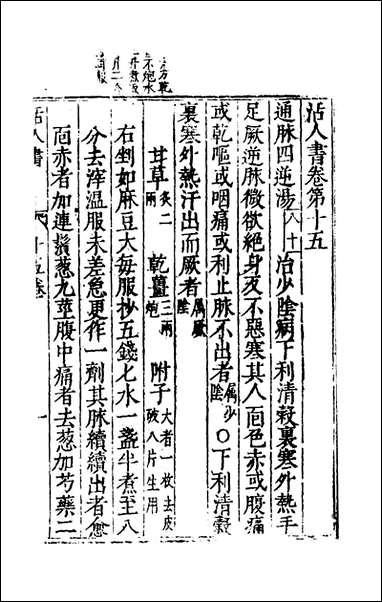 活人書卷第十五
通脉四逆湯八十治少陰病下利清穀裏寒外熱手
足厥逆脉微欲絶身反不惡寒其人面色赤或腹痛
或乾嘔或咽痛或利止脉不出者屬少陰○下利清穀
裏寒外熱汗出而厥者屬厥陰
甘草炙二兩 乾薑三兩炮 附子大者一枚去皮破八片生用
右剉如麻豆大每服抄五錢七水一盞半煮至八
分去滓温服未差急更作一劑其脉續續出者愈
面赤者加連鬚葱九莖腹中痛者去葱加芍藥二
活人書 十五卷 一